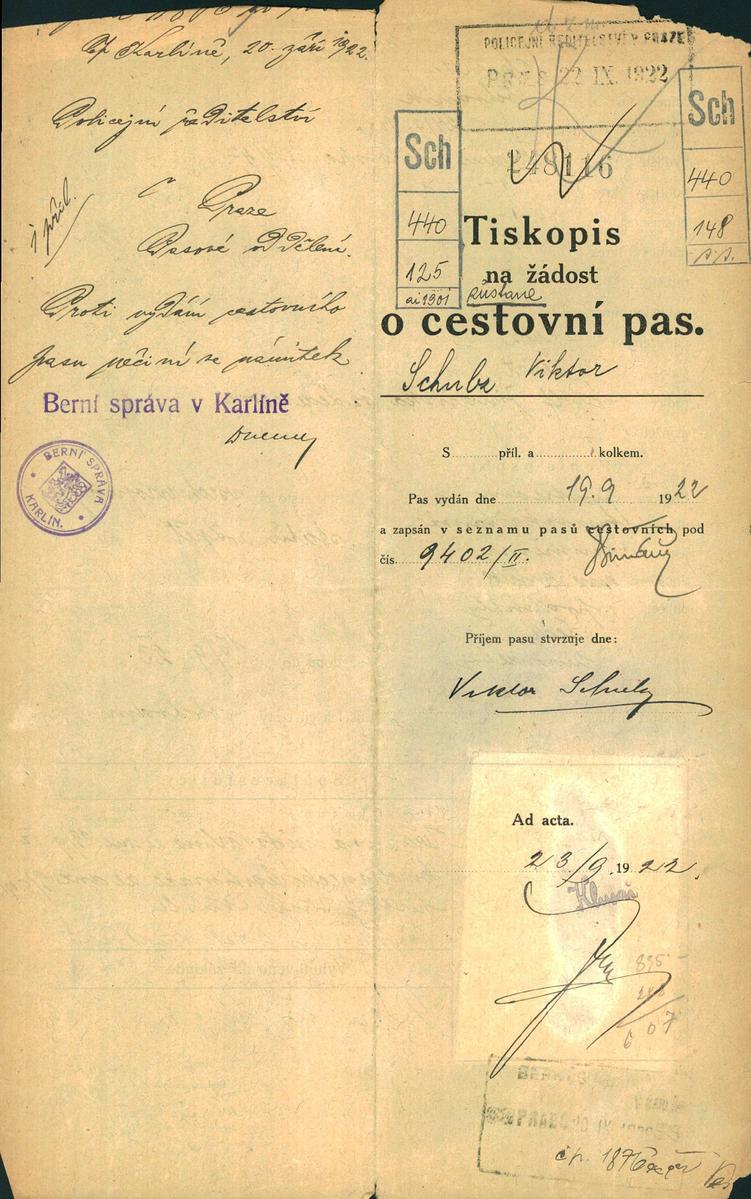 V Karlíně, 20. září 1922.
Policejní ředitelství
v Praze
Pasové oddělení.
1 příl.
Proti vydání cestovního
pasu nečiní se námitek
Berní správa v Karlíně
BERNÍ SPRÁVA
KARLÍN.
POLICEJNÍ ŘEDITELSTVÍ V PRAZE
22 IX. 1922
Sch
440
125
ai 1901
Sch
440
148
248116
Tiskopis
na žádost
zůstane
o cestovní pas.
Schulz Viktor
S příl. a kolkem.
Pas vydán dne 19.9 1922
a zapsán v seznamu pasů cestovních pod
čís. 9402/II.
Příjem pasu stvrzuje dne:
Viktor Schulz
Ad acta.
23/9. 1922.
895
6 07
čp. 1876